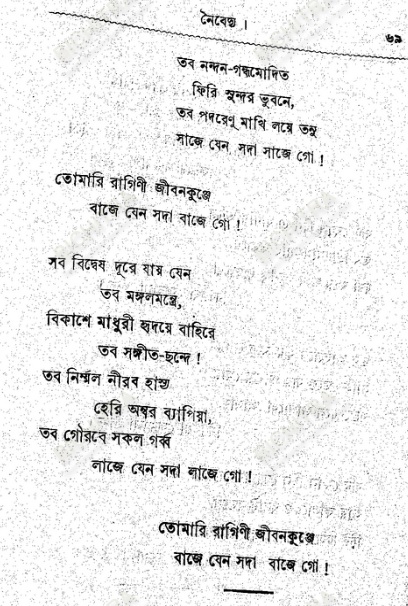 নৈবেদ্য ।
৬৯
তব নন্দন-গন্ধমোদিত
ফিরি সুন্দর ভুবনে,
তব পদরেণু মাখি লয়ে তনু
সাজে যেন সদা সাজে গো !
তোমারি রাগিণী জীবনকুঞ্জে
বাজে যেন সদা বাজে গো !
সব বিদ্বেষ দূরে যায় যেন
তব মঙ্গলমন্ত্রে,
বিকাশে মাধুরী হৃদয়ে বাহিরে
তব সঙ্গীত-ছন্দে !
তব নির্ম্মল নীরব হাস্য
হেরি অম্বর ব্যাপিয়া,
তব গৌরবে সকল গর্ব্ব
লাজে যেন সদা লাজে গো !
তোমারি রাগিণী জীবনকুঞ্জে
বাজে যেন সদা বাজে গো !